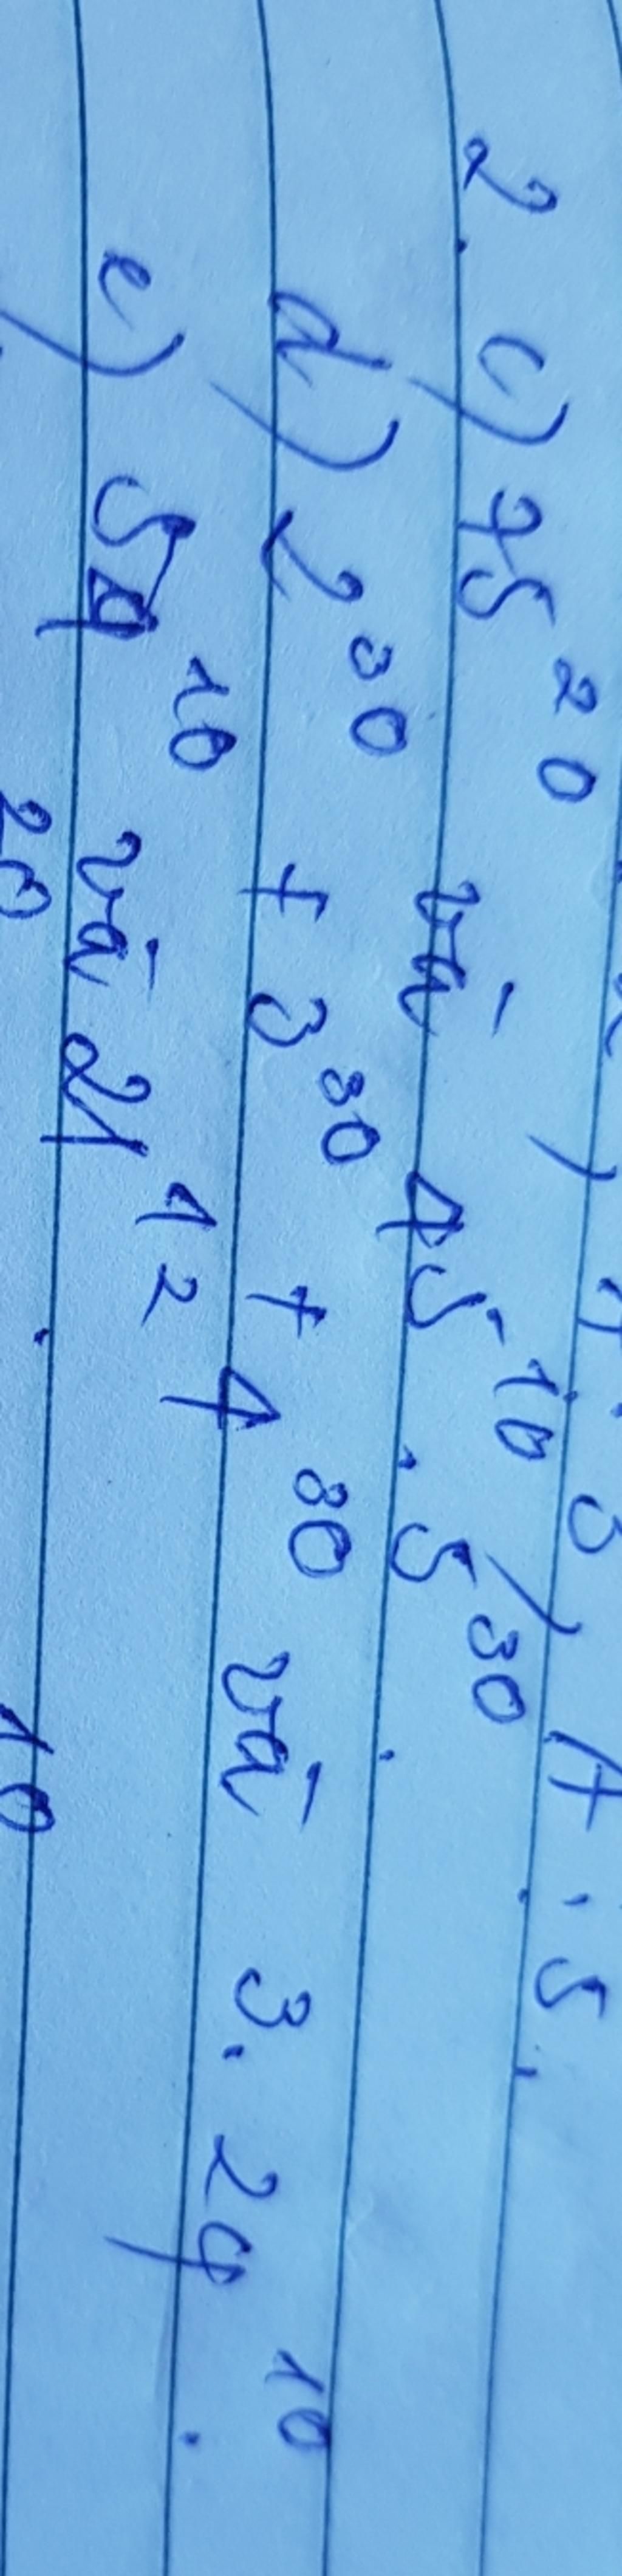 2. c) 75²⁰ và 45¹⁰ . 5³⁰
d) 2³⁰ + 3³⁰ + 4³⁰ và 3. 24¹⁰
e) 54¹⁰ và 21¹²